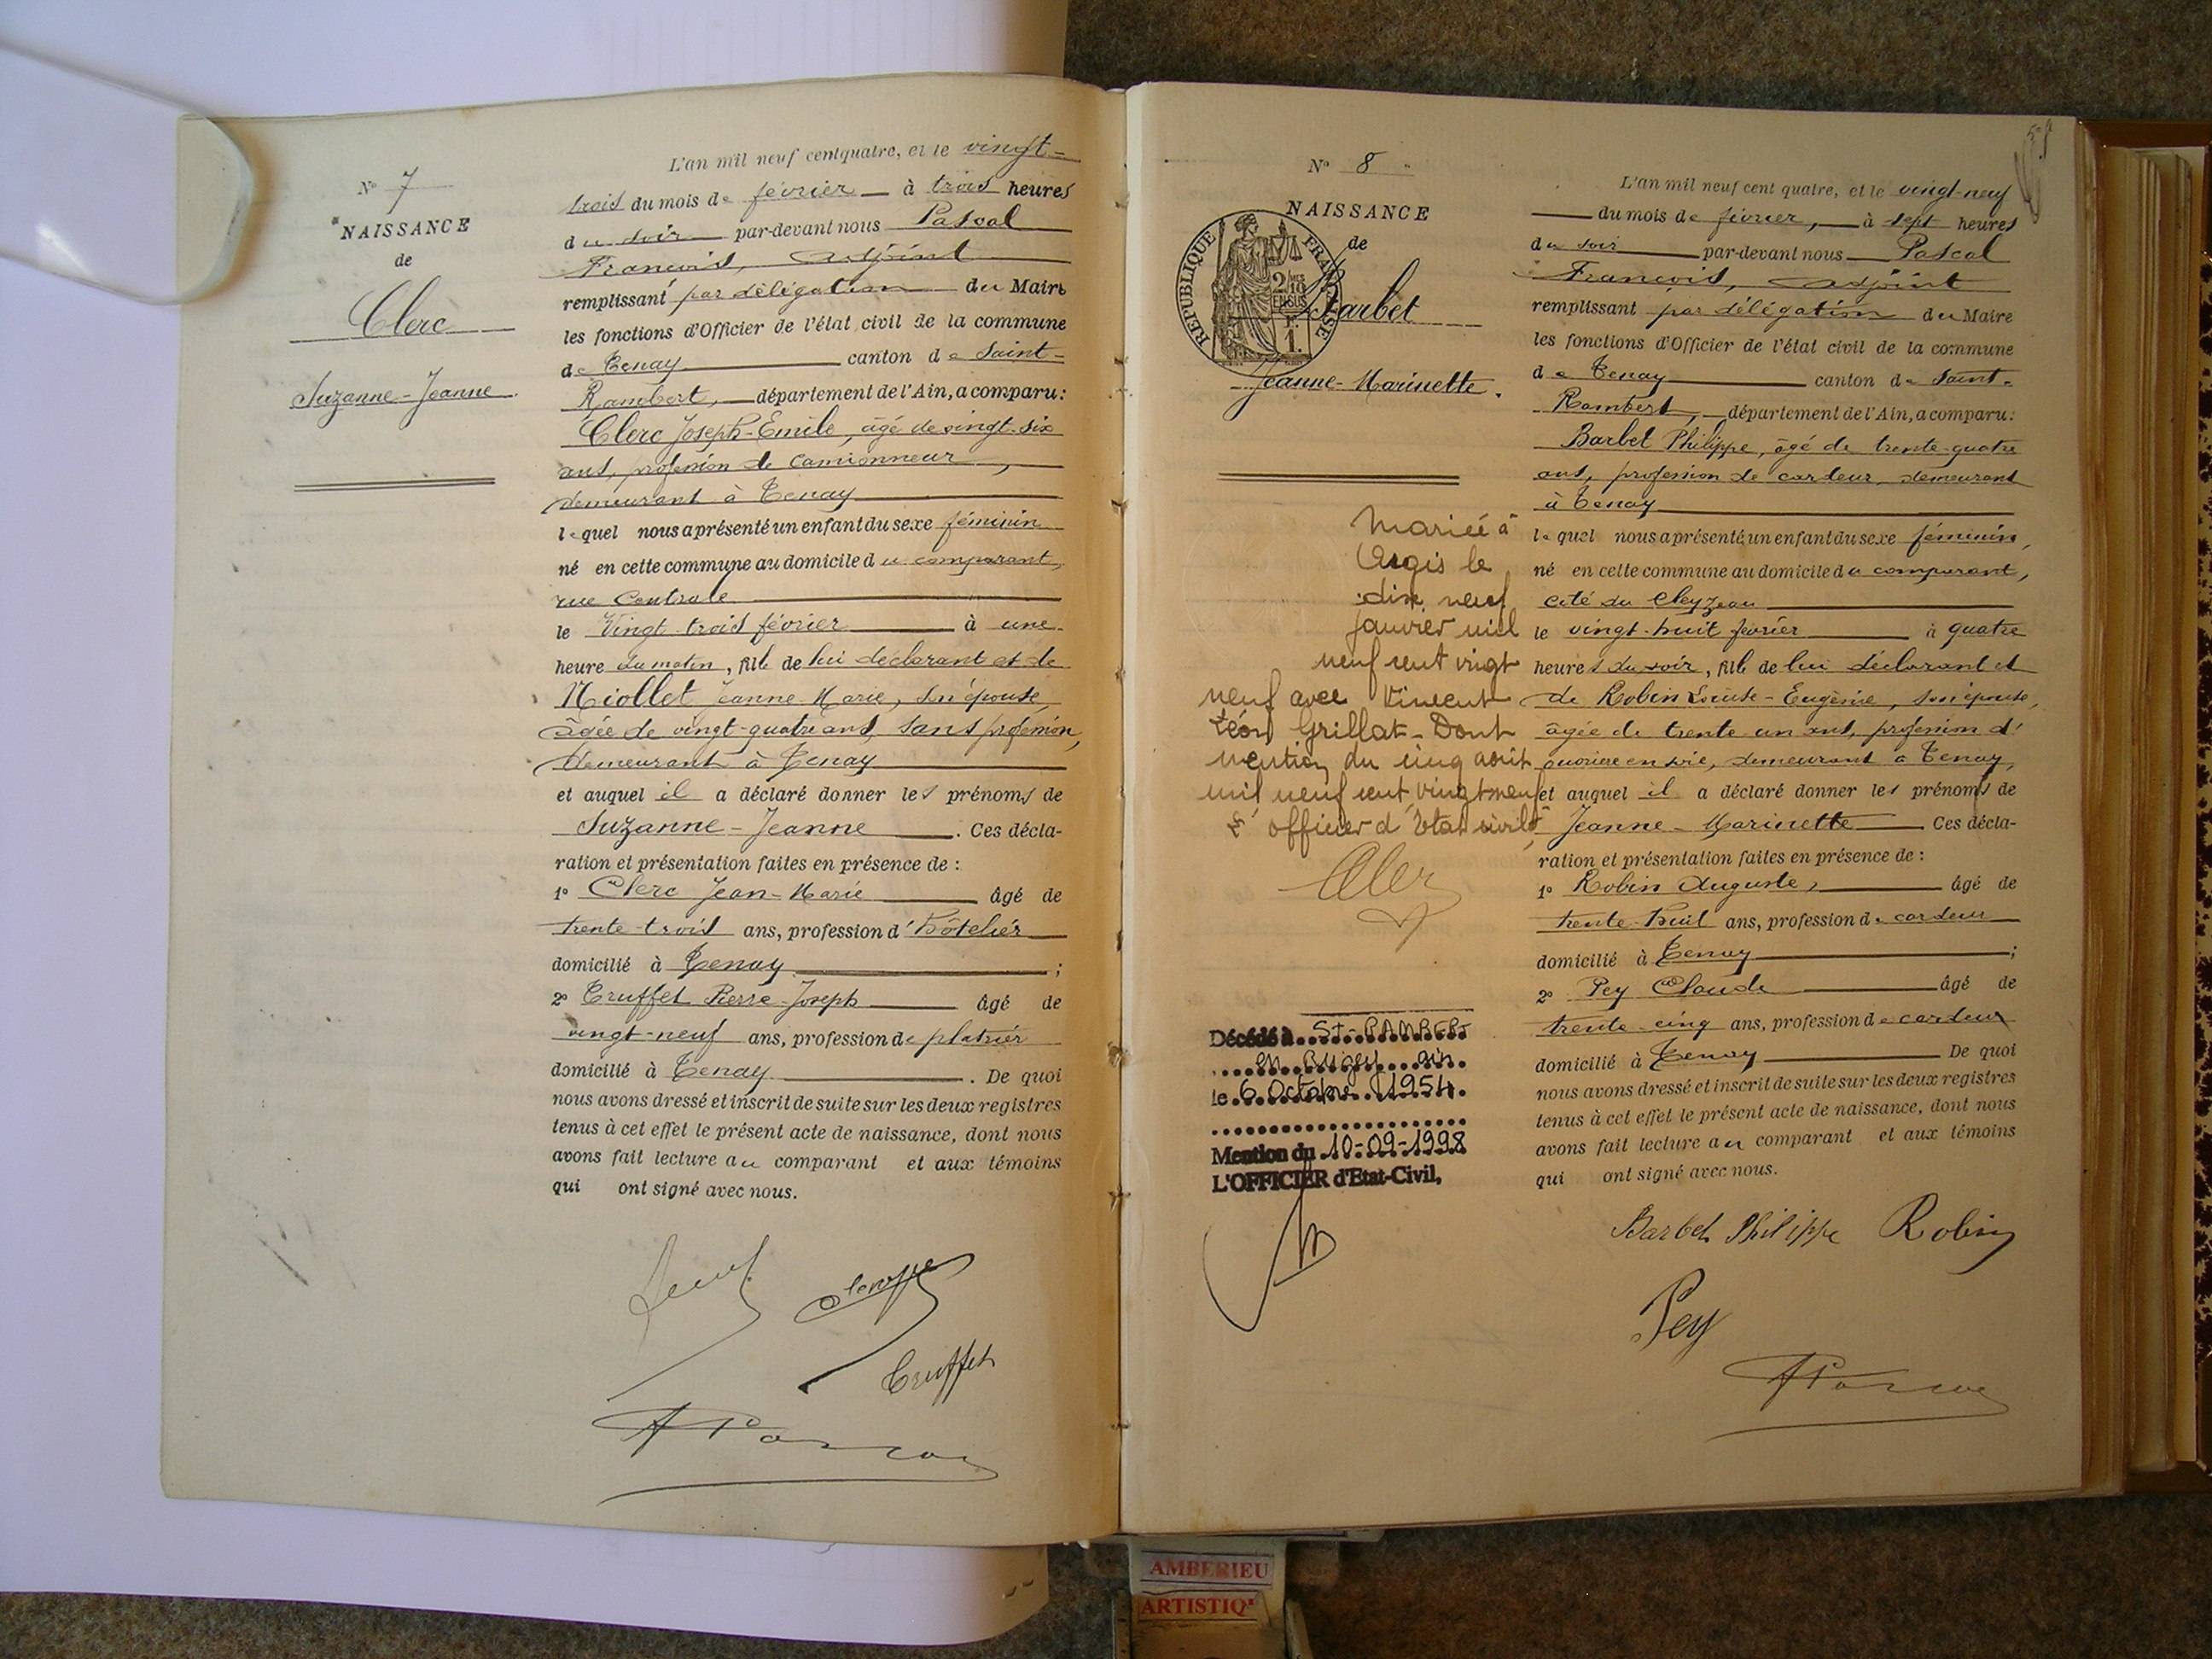 N° 7
NAISSANCE
de
Clerc
Suzanne-Jeanne
L'an mil neuf cent quatre, et le vingt-
trois du mois de février à trois heures
du soir par-devant nous Pascal
François, adjoint
remplissant par délégation du Maire
les fonctions d'Officier de l'état civil de la commune
de Tenay canton de Saint-
Rambert, département de l'Ain, a comparu:
Clerc Joseph-Emile, âgé de vingt-six
ans, profession de camionneur,
demeurant à Tenay
lequel nous a présenté un enfant du sexe féminin
né en cette commune au domicile du comparant,
rue Centrale
le Vingt trois février à une
heure du matin, fille de lui déclarant et de
Niollet Jeanne-Marie, son épouse,
âgée de vingt-quatre ans, sans profession,
demeurant à Tenay
et auquel il a déclaré donner les prénoms de
Suzanne-Jeanne. Ces décla-
ration et présentation faites en présence de :
1° Clerc Jean-Marie âgé de
trente-trois ans, profession d'hôtelier
domicilié à Tenay ;
2° Truffet Pierre-Joseph âgé de
vingt-neuf ans, profession de platrier
domicilié à Tenay. De quoi
nous avons dressé et inscrit de suite sur les deux registres
tenus à cet effet le présent acte de naissance, dont nous
avons fait lecture au comparant et aux témoins
qui ont signé avec nous.
Truffet
N° 8
NAISSANCE
de
Barbet
Jeanne-Marinette.
REPUBLIQUE FRANÇAISE
2/10
EN SUS
1.
Mariée à
Argis le
dix neuf
janvier mil
neuf cent vingt
neuf avec Vincent
Léon Grillat - Dont
mention du cinq août
mil neuf cent vingt neuf
L'officier d'Etat civil,
Décédé à St-RAMBERT
en Bugey ain
le 6 Octobre 1954.
Mention du 10-09-1998
L'OFFICIER d'Etat-Civil,
L'an mil neuf cent quatre, et le vingt-neuf
du mois de février, à sept heures
du soir par-devant nous Pascal
François, adjoint
remplissant par délégation du Maire
les fonctions d'Officier de l'état civil de la commune
de Tenay canton de Saint-
Rambert, département de l'Ain, a comparu:
Barbet Philippe, âgé de trente-quatre
ans, profession de cardeur, demeurant
à Tenay
lequel nous a présenté un enfant du sexe féminin,
né en cette commune au domicile du comparant,
cité du Cleyzeau
le vingt-huit février à quatre
heures du soir, fille de lui déclarant et
de Robin Louise-Eugènie, son épouse,
âgée de trente un ans, profession d'
ouvrière en soie, demeurant à Tenay,
et auquel il a déclaré donner les prénoms de
Jeanne-Marinette Ces décla-
ration et présentation faites en présence de :
1° Robin Auguste, âgé de
trente-huit ans, profession de cardeur
domicilié à Tenay ;
2° Pey Claude âgé de
trente-cinq ans, profession de cardeur
domicilié à Tenay De quoi
nous avons dressé et inscrit de suite sur les deux registres
tenus à cet effet le présent acte de naissance, dont nous
avons fait lecture au comparant et aux témoins
qui ont signé avec nous.
Barbet Philippe Robin
Pey
AMBERIEU
ARTISTIQ